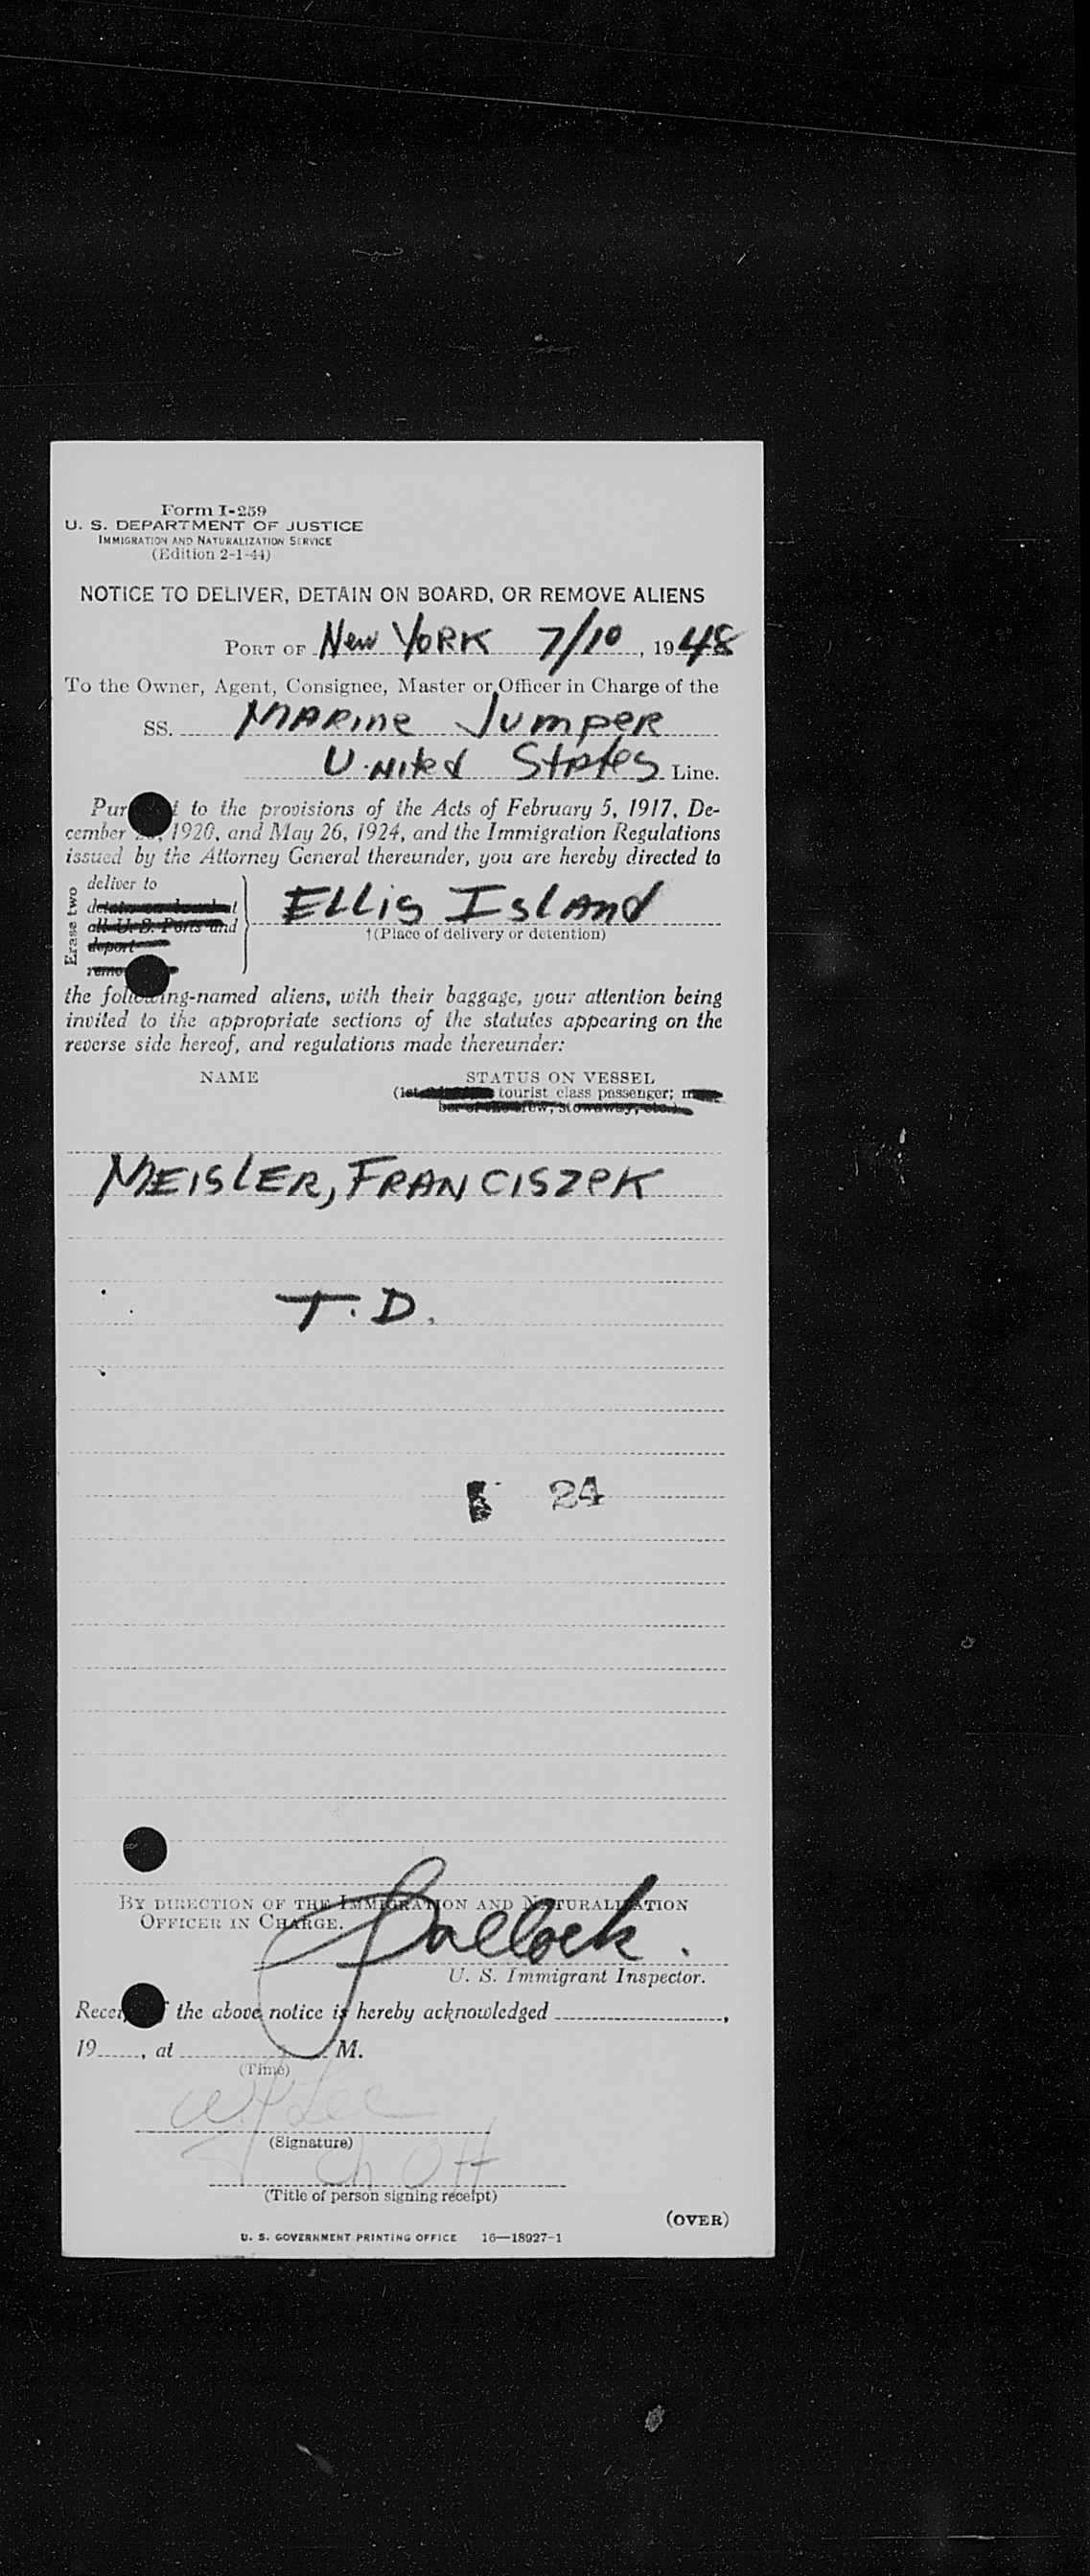 Form I-259
U. S. DEPARTMENT OF JUSTICE
IMMIGRATION AND NATURALIZATION SERVICE
(Edition 2-1-44)
NOTICE TO DELIVER, DETAIN ON BOARD, OR REMOVE ALIENS
PORT OF New YORK 7/10, 1948
To the Owner, Agent, Consignee, Master or Officer in Charge of the
SS. MARINE JUMPER
UNITED STATES Line.
to the provisions of the Acts of February 5, 1917, De-
cember 1920, and May 26, 1924, and the Immigration Regulations
issued by the Attorney General thereunder, you are hereby directed to
Erase two
deliver to
detain on board at
all U. S. Ports and
deport
ELLIS ISLAND
†(Place of delivery or detention)
the following-named aliens, with their baggage, your attention being
invited to the appropriate sections of the statutes appearing on the
reverse side hereof, and regulations made thereunder:
NAME STATUS ON VESSEL
(1st tourist class passenger;
ber of the crew, stowaway, etc.)
MEISLER, FRANCISZEK
T. D.
24
BY DIRECTION OF THE IMMIGRATION AND NATURALIZATION
OFFICER IN CHARGE.
Pollock.
U. S. Immigrant Inspector.
the above notice is hereby acknowledged ,
19 , at M.
(Time)
Lee
(Signature)
Ch Off
(Title of person signing receipt)
(OVER)
U. S. GOVERNMENT PRINTING OFFICE 16—18927-1